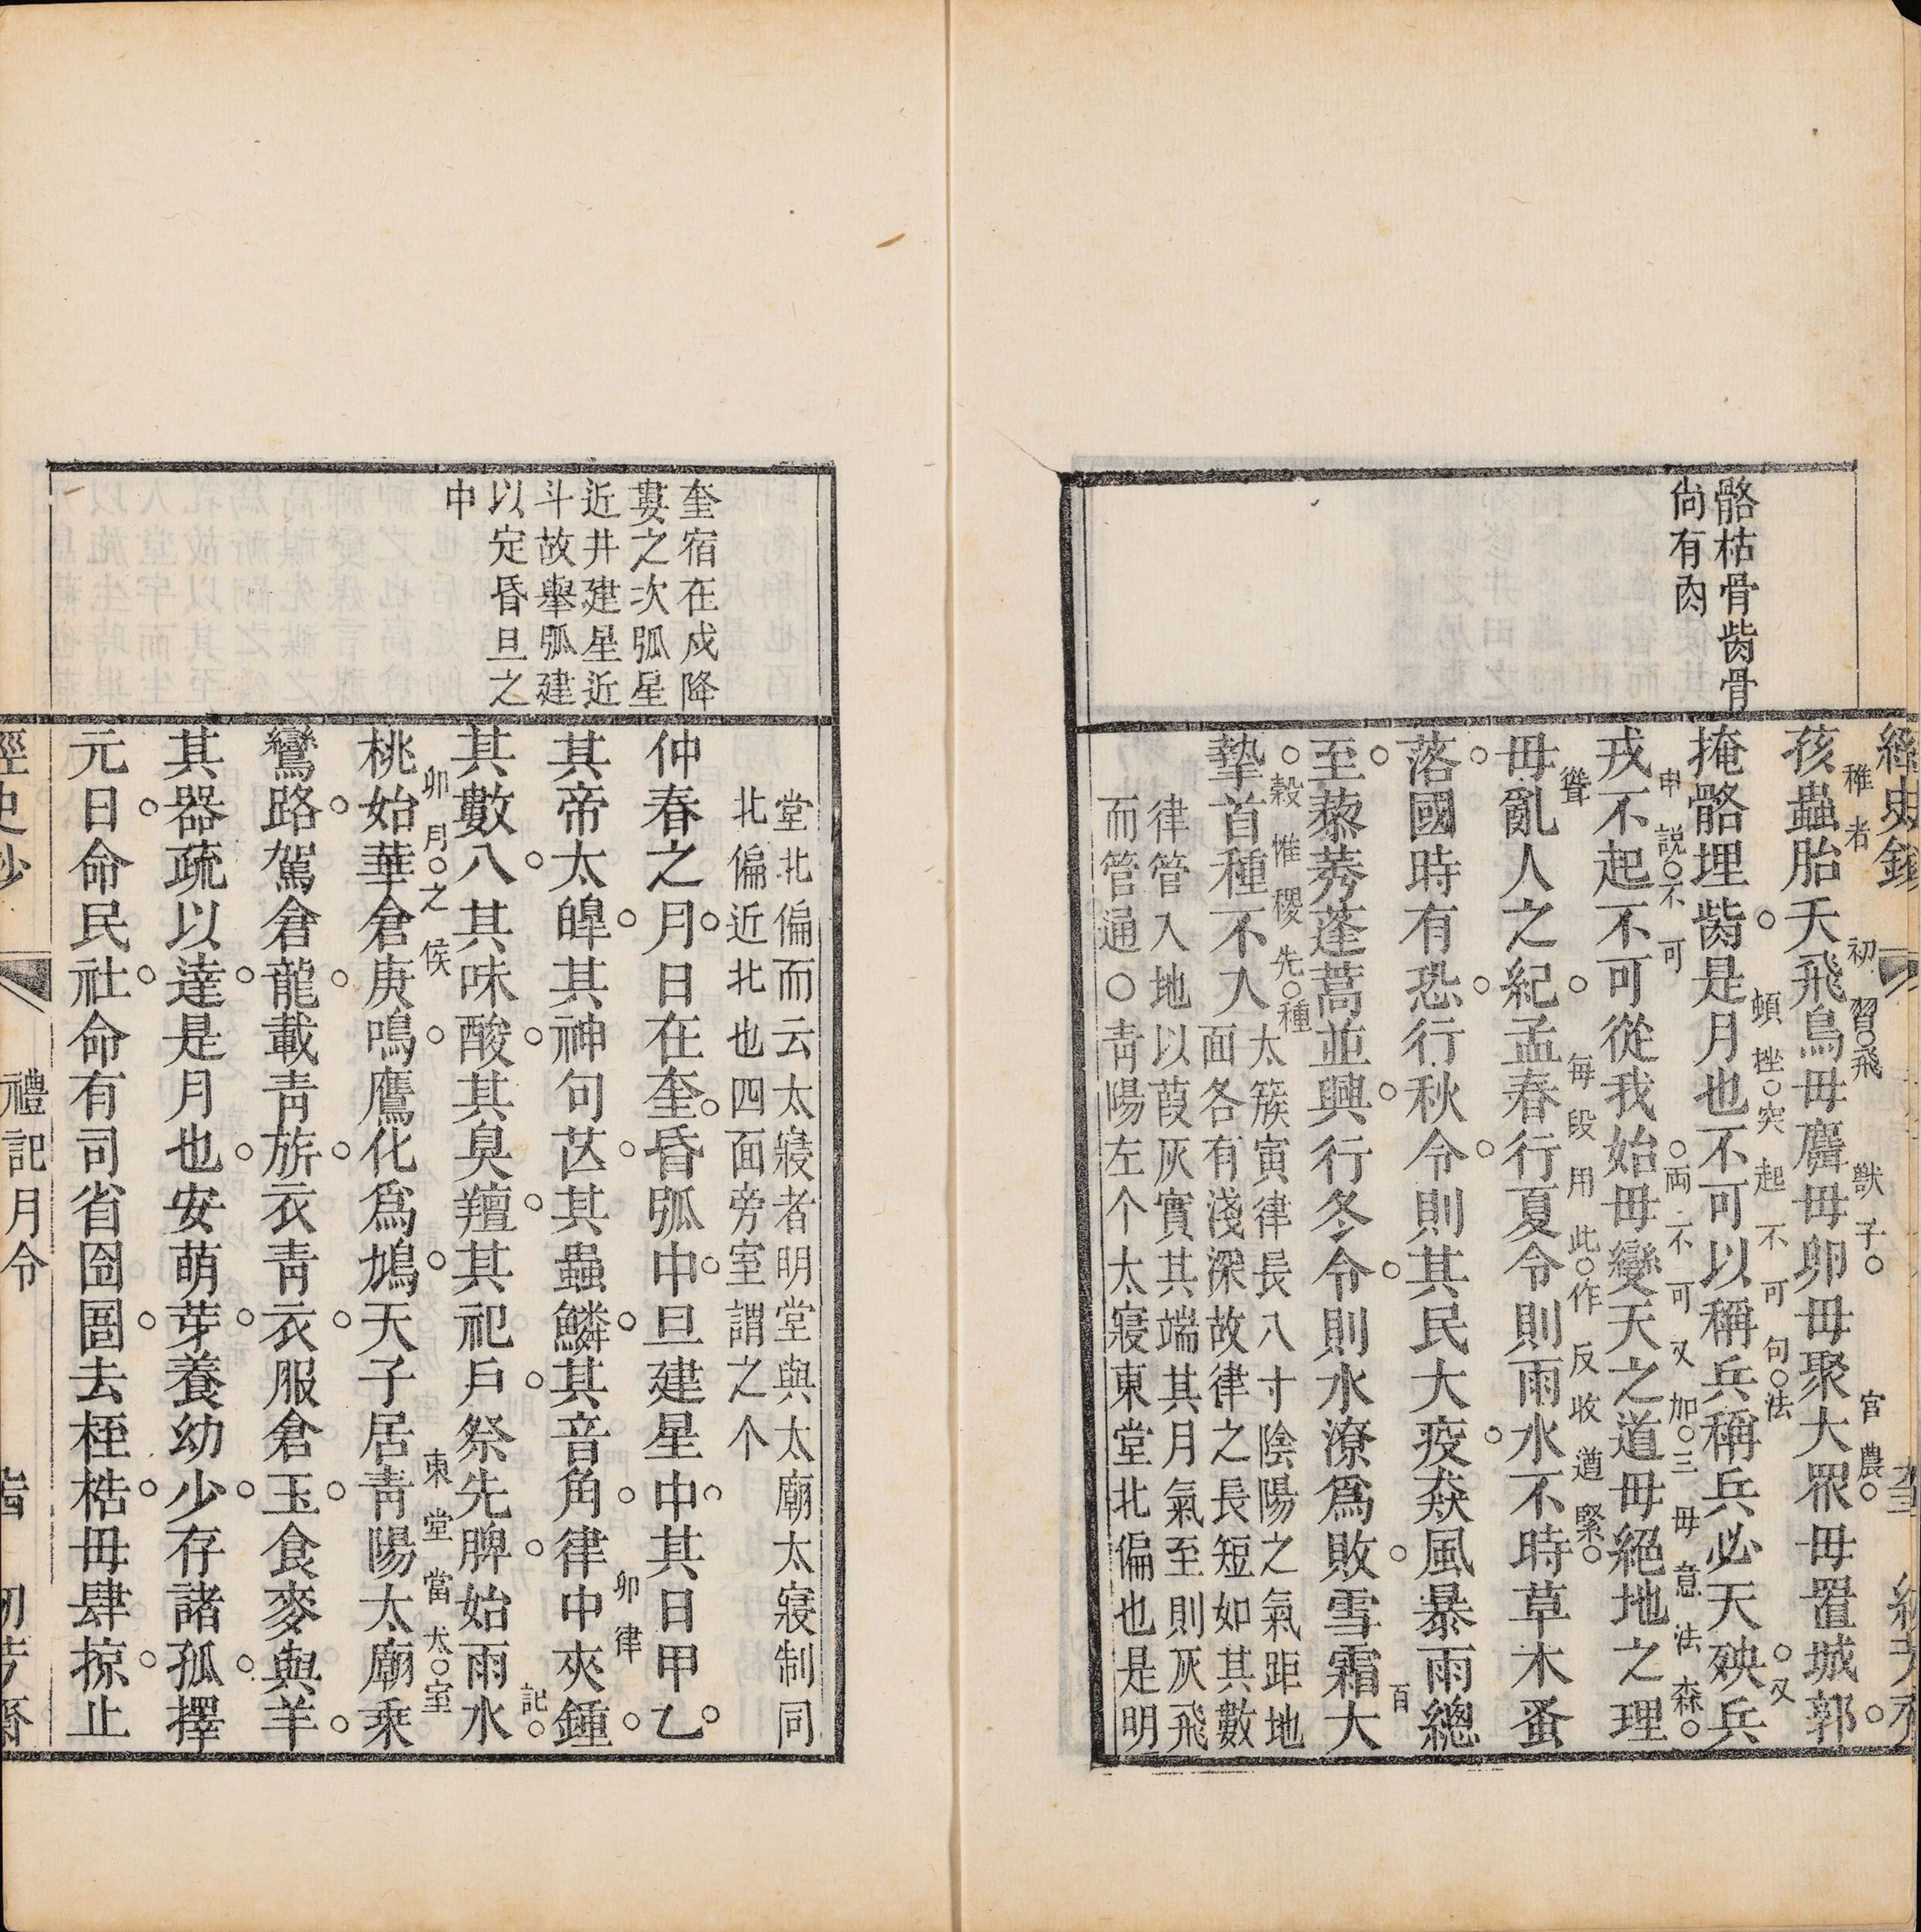 骼枯骨胔骨
尙有肉
孩蟲胎夭飛鳥毋麛毋卵毋聚大眾毋置城郭
稚者
初習飛
獸子
官農
掩骼埋胔是月也不可以稱兵稱兵必天殃兵
頓挫突起不可句法
又
戎不起不可從我始毋變天之道毋絕地之理
申說不可
兩不可又加三毋意法森
毋亂人之紀孟春行夏令則雨水不時草木蚤
聳
每段用此作反收遒緊
落國時有恐行秋令則其民大疫猋風暴雨總
至藜莠蓬蒿並興行冬令則水潦爲敗雪霜大
百
摯首種不入
穀惟稷先種
太簇寅律長八寸陰陽之氣距地
面各有淺深故律之長短如其數
律管入地以葭灰實其端其月氣至則灰飛
而管通○靑陽左个太寢東堂北偏也是明
奎宿在戍降
婁之次弧星
近井建星近
斗故舉弧建
以定昏旦之
中
堂北偏而云太寢者明堂與太廟太寢制同
北偏近北也四面旁室謂之个
仲春之月日在奎昏弧中旦建星中其日甲乙
其帝太皞其神句芒其蟲鱗其音角律中夾鍾
卯律
其數八其味酸其臭羶其祀戶祭先脾始雨水
記
桃始華倉庚鳴鷹化爲鳩天子居靑陽太廟乘
卯月之候
東堂當太室
鸞路駕倉龍載靑旂衣靑衣服倉玉食麥與羊
其器疏以達是月也安萌芽養幼少存諸孤擇
元日命民社命有司省囹圄去桎梏毋肆掠止
禮記月令